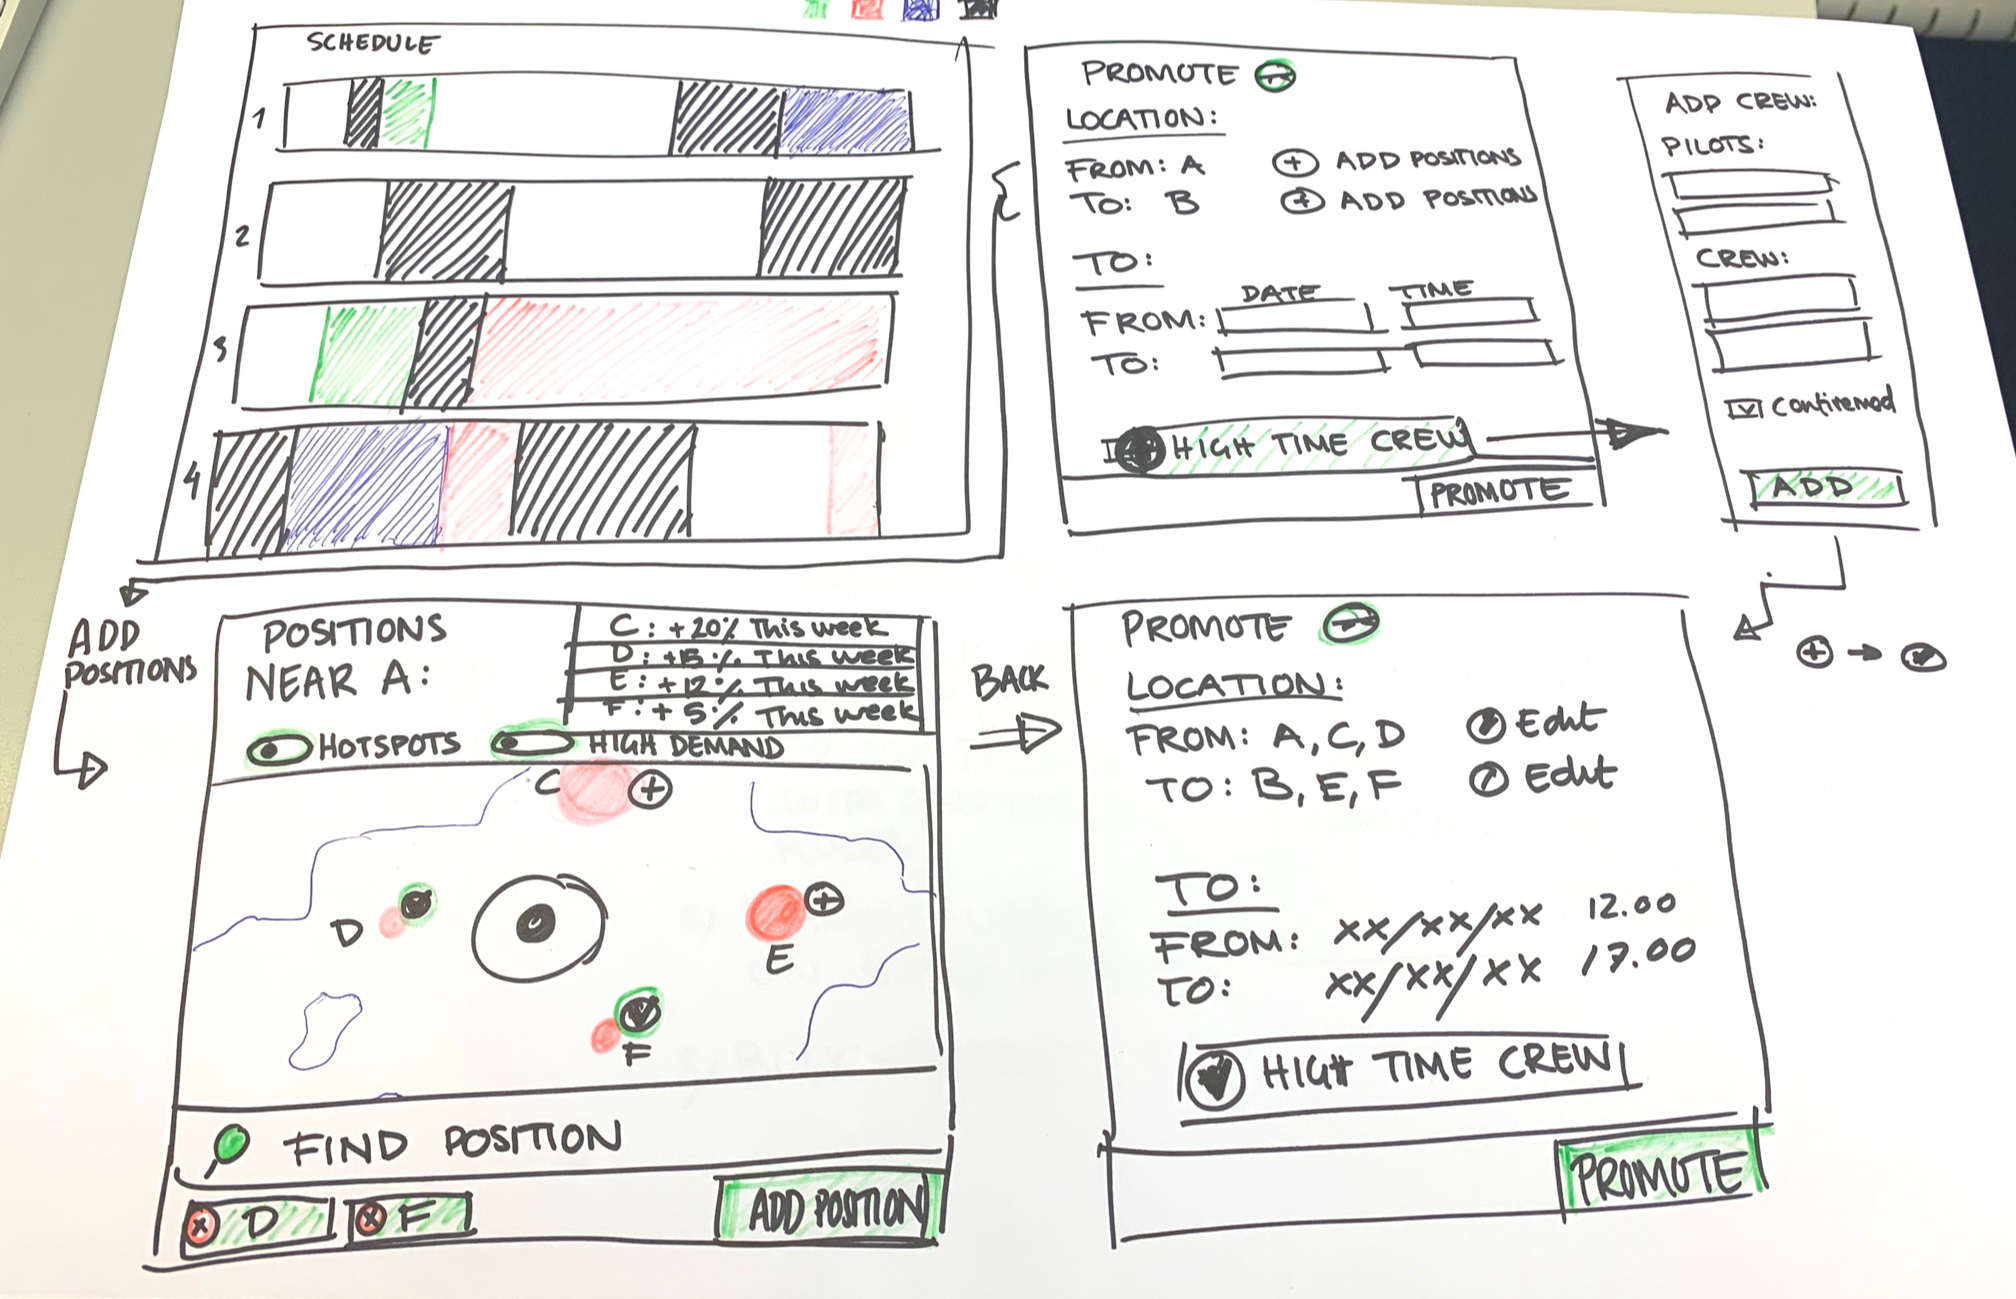 SCHEDULE
1
2
3
4
PROMOTE
LOCATION:
FROM: A ADD POSITIONS
TO: B ADD POSITIONS
TO:
DATE TIME
FROM:
TO:
HIGH TIME CREW
PROMOTE
ADD CREW:
PILOTS:
CREW:
Confiremod
ADD
ADD
POSITIONS
POSITIONS
NEAR A:
C: +20% This week
D: +15% This week
E: +12% This week
F: + 5% This week
HOTSPOTS HIGH DEMAND
C
D
E
F
FIND POSITION
D F ADD POSITION
BACK
PROMOTE
LOCATION:
FROM: A, C, D Edit
TO: B, E, F Edit
TO:
FROM: xx/xx/xx 12.00
TO: xx/xx/xx 17.00
HIGH TIME CREW
PROMOTE